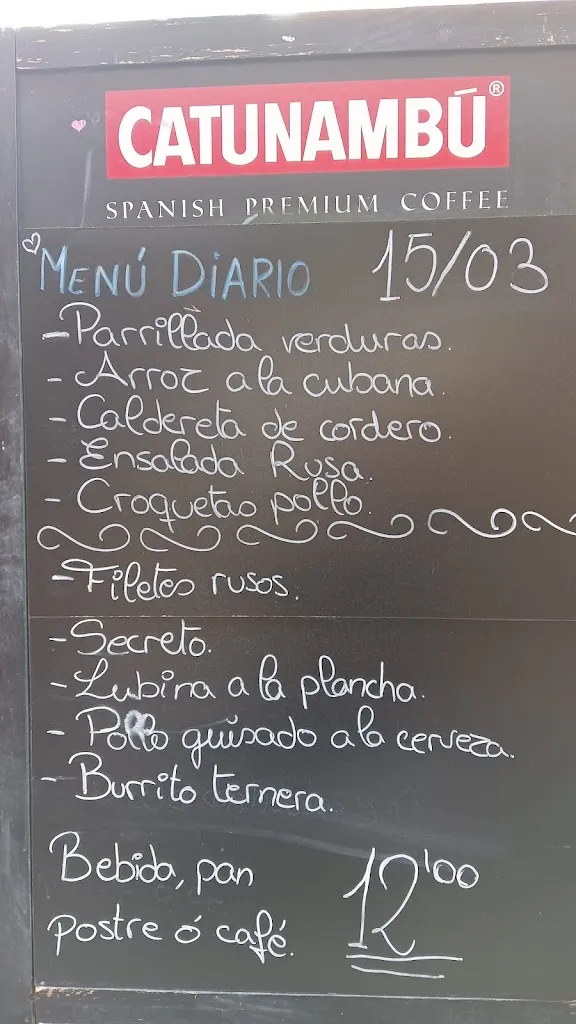 CATUNAMBÚ®
SPANISH PREMIUM COFFEE
MENÚ DIARIO 15/03
- Parrillada verduras.
- Arroz a la cubana.
- Caldereta de cordero.
- Ensalada Rusa.
- Croquetas pollo.
- Filetes rusos.
- Secreto.
- Lubina a la plancha.
- Pollo guisado a la cerveza.
- Burrito ternera.
Bebida, pan
postre ó café. 12'00